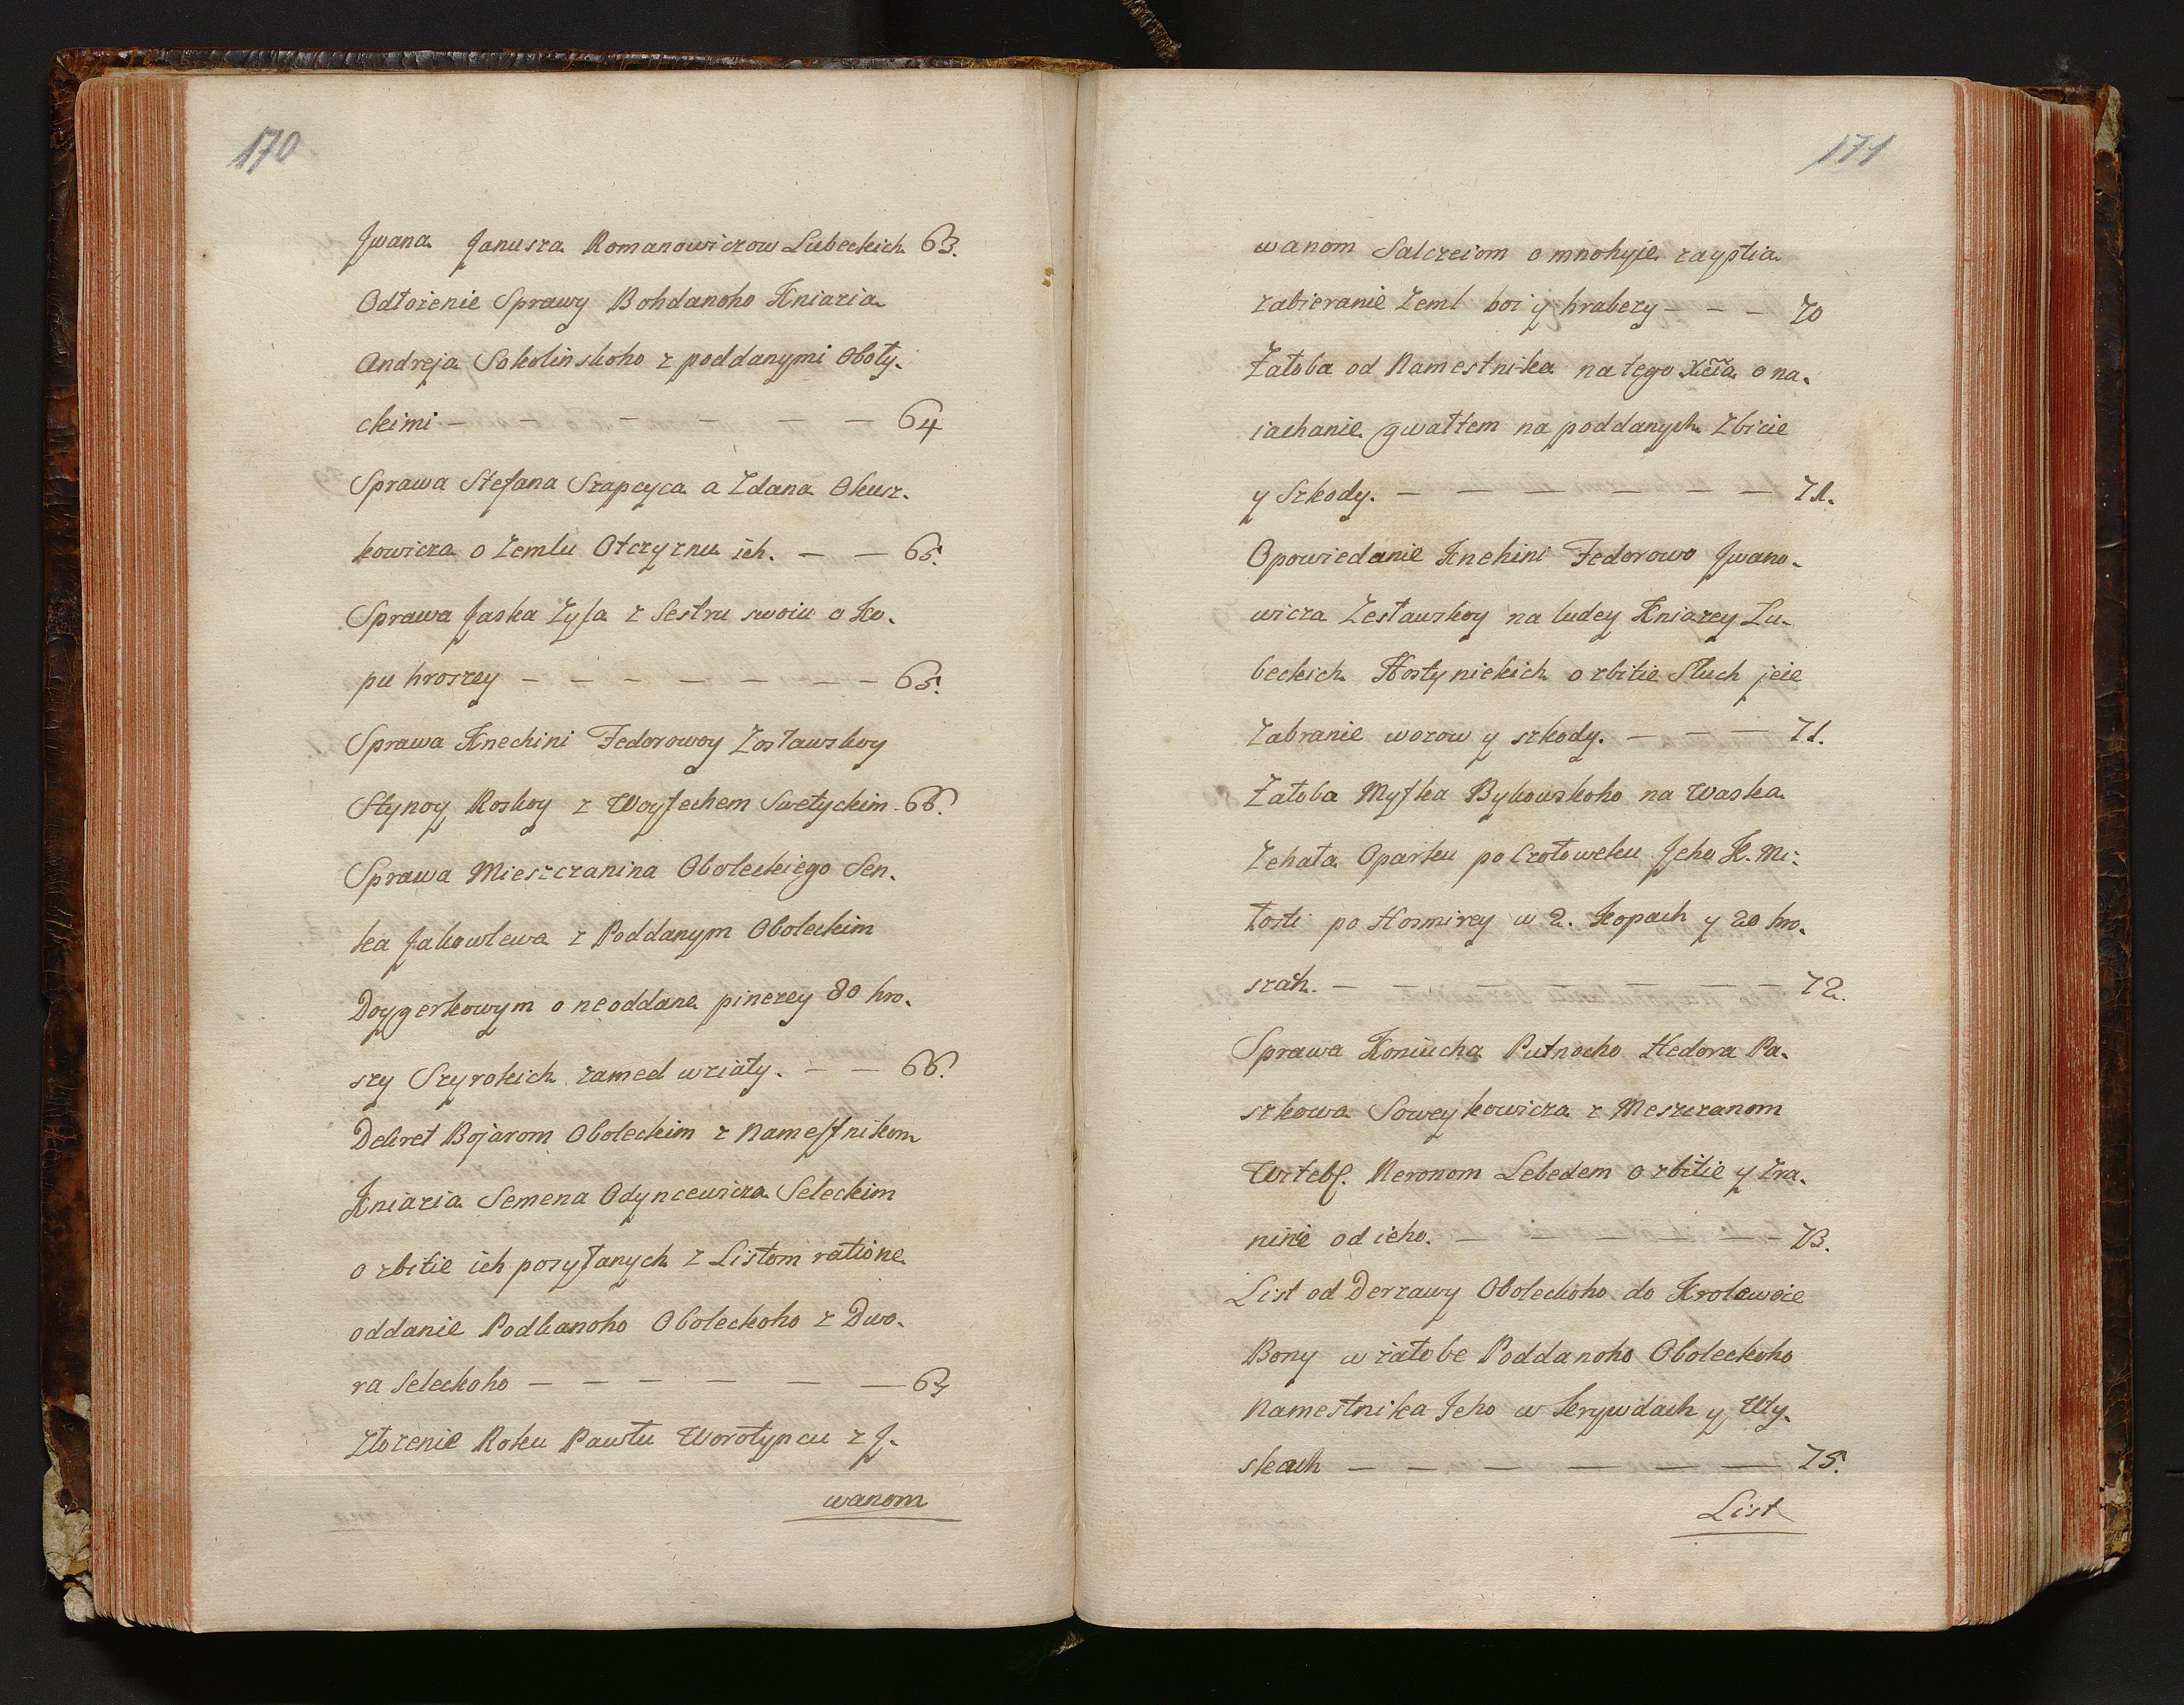 170
Jwana Janusza Romanowiczow Lubeckich 63.
Odłożenie Sprawy Bohdanoho Kniazia
Andreja Sokolinskoho z poddanymi Oboly-
ckimi — — — — — — 64
Sprawa Stefana Szapcyca a Zdana Okusz-
kowicza o Zemlu Otczyznu ich. — — 65.
Sprawa Jaska Zyfa z Sestru swoiu o Ko-
pu hroszey — — — — — — — 65.
Sprawa Knechini Fedorowoy Zosławskoy
Stynoy Roskoy z Woyſechem Swetyckim. 66.
Sprawa Mieszczanina Oboleckiego Sen-
ka Jakowlewa z Poddanym Oboleckim
Doygerkowym o neoddane pinezey 80 hro-
szy Szyrokich zamed wziaty. — — 66.
Dekret Bojarom Oboleckim z Nameſtnikom
Kniazia Semena Odyncewicza Seleckim
o zbitie ich posyłanych z Listom ratione
oddanie Poddanoho Oboleckoho z Dwo-
ra Seleckoho — — — — — — 67
Złozenie Roku Pawłu Worotyncu z J-
wanom
171
wanom Salczeiom o mnohyje zayſtia
zabieranie Zeml boi y hrabezy — — — 70
Załoba od Namestnika na tego Xcia o na-
iachanie gwałtem na poddanych Zbicie
y Szkody. — — — — — — — 71.
Opowiedanie Knehini Fedorowo Jwano-
wicza Zesławskoy na ludey Kniazey Lu-
beckich Hostynickich o zbitie Sluch jeie
Zabranie wozow y szkody. — — — 71.
Załoba Myſka Bykowskoho na Waska
Zehata Oparku po Czołoweku Jeho K. Mi-
łosti po Hosmirey w 2. Kopach y 20 hro-
szah. — — — — — — — — 72.
Sprawa Koniucha Putnocho Hedora Pa-
szkowa Soweykowicza z Meszczanom
Witebſ. Neronom Lebedem o zbitie y Zra-
ninie od ieho. — — — — — — 73.
List od Derzawy Oboleckoho do Krolewoie
Bony w załobe Poddanoho Oboleckoho
Namestnika Jeho w krywdach y Uty-
skach — — — — — — 75.
List